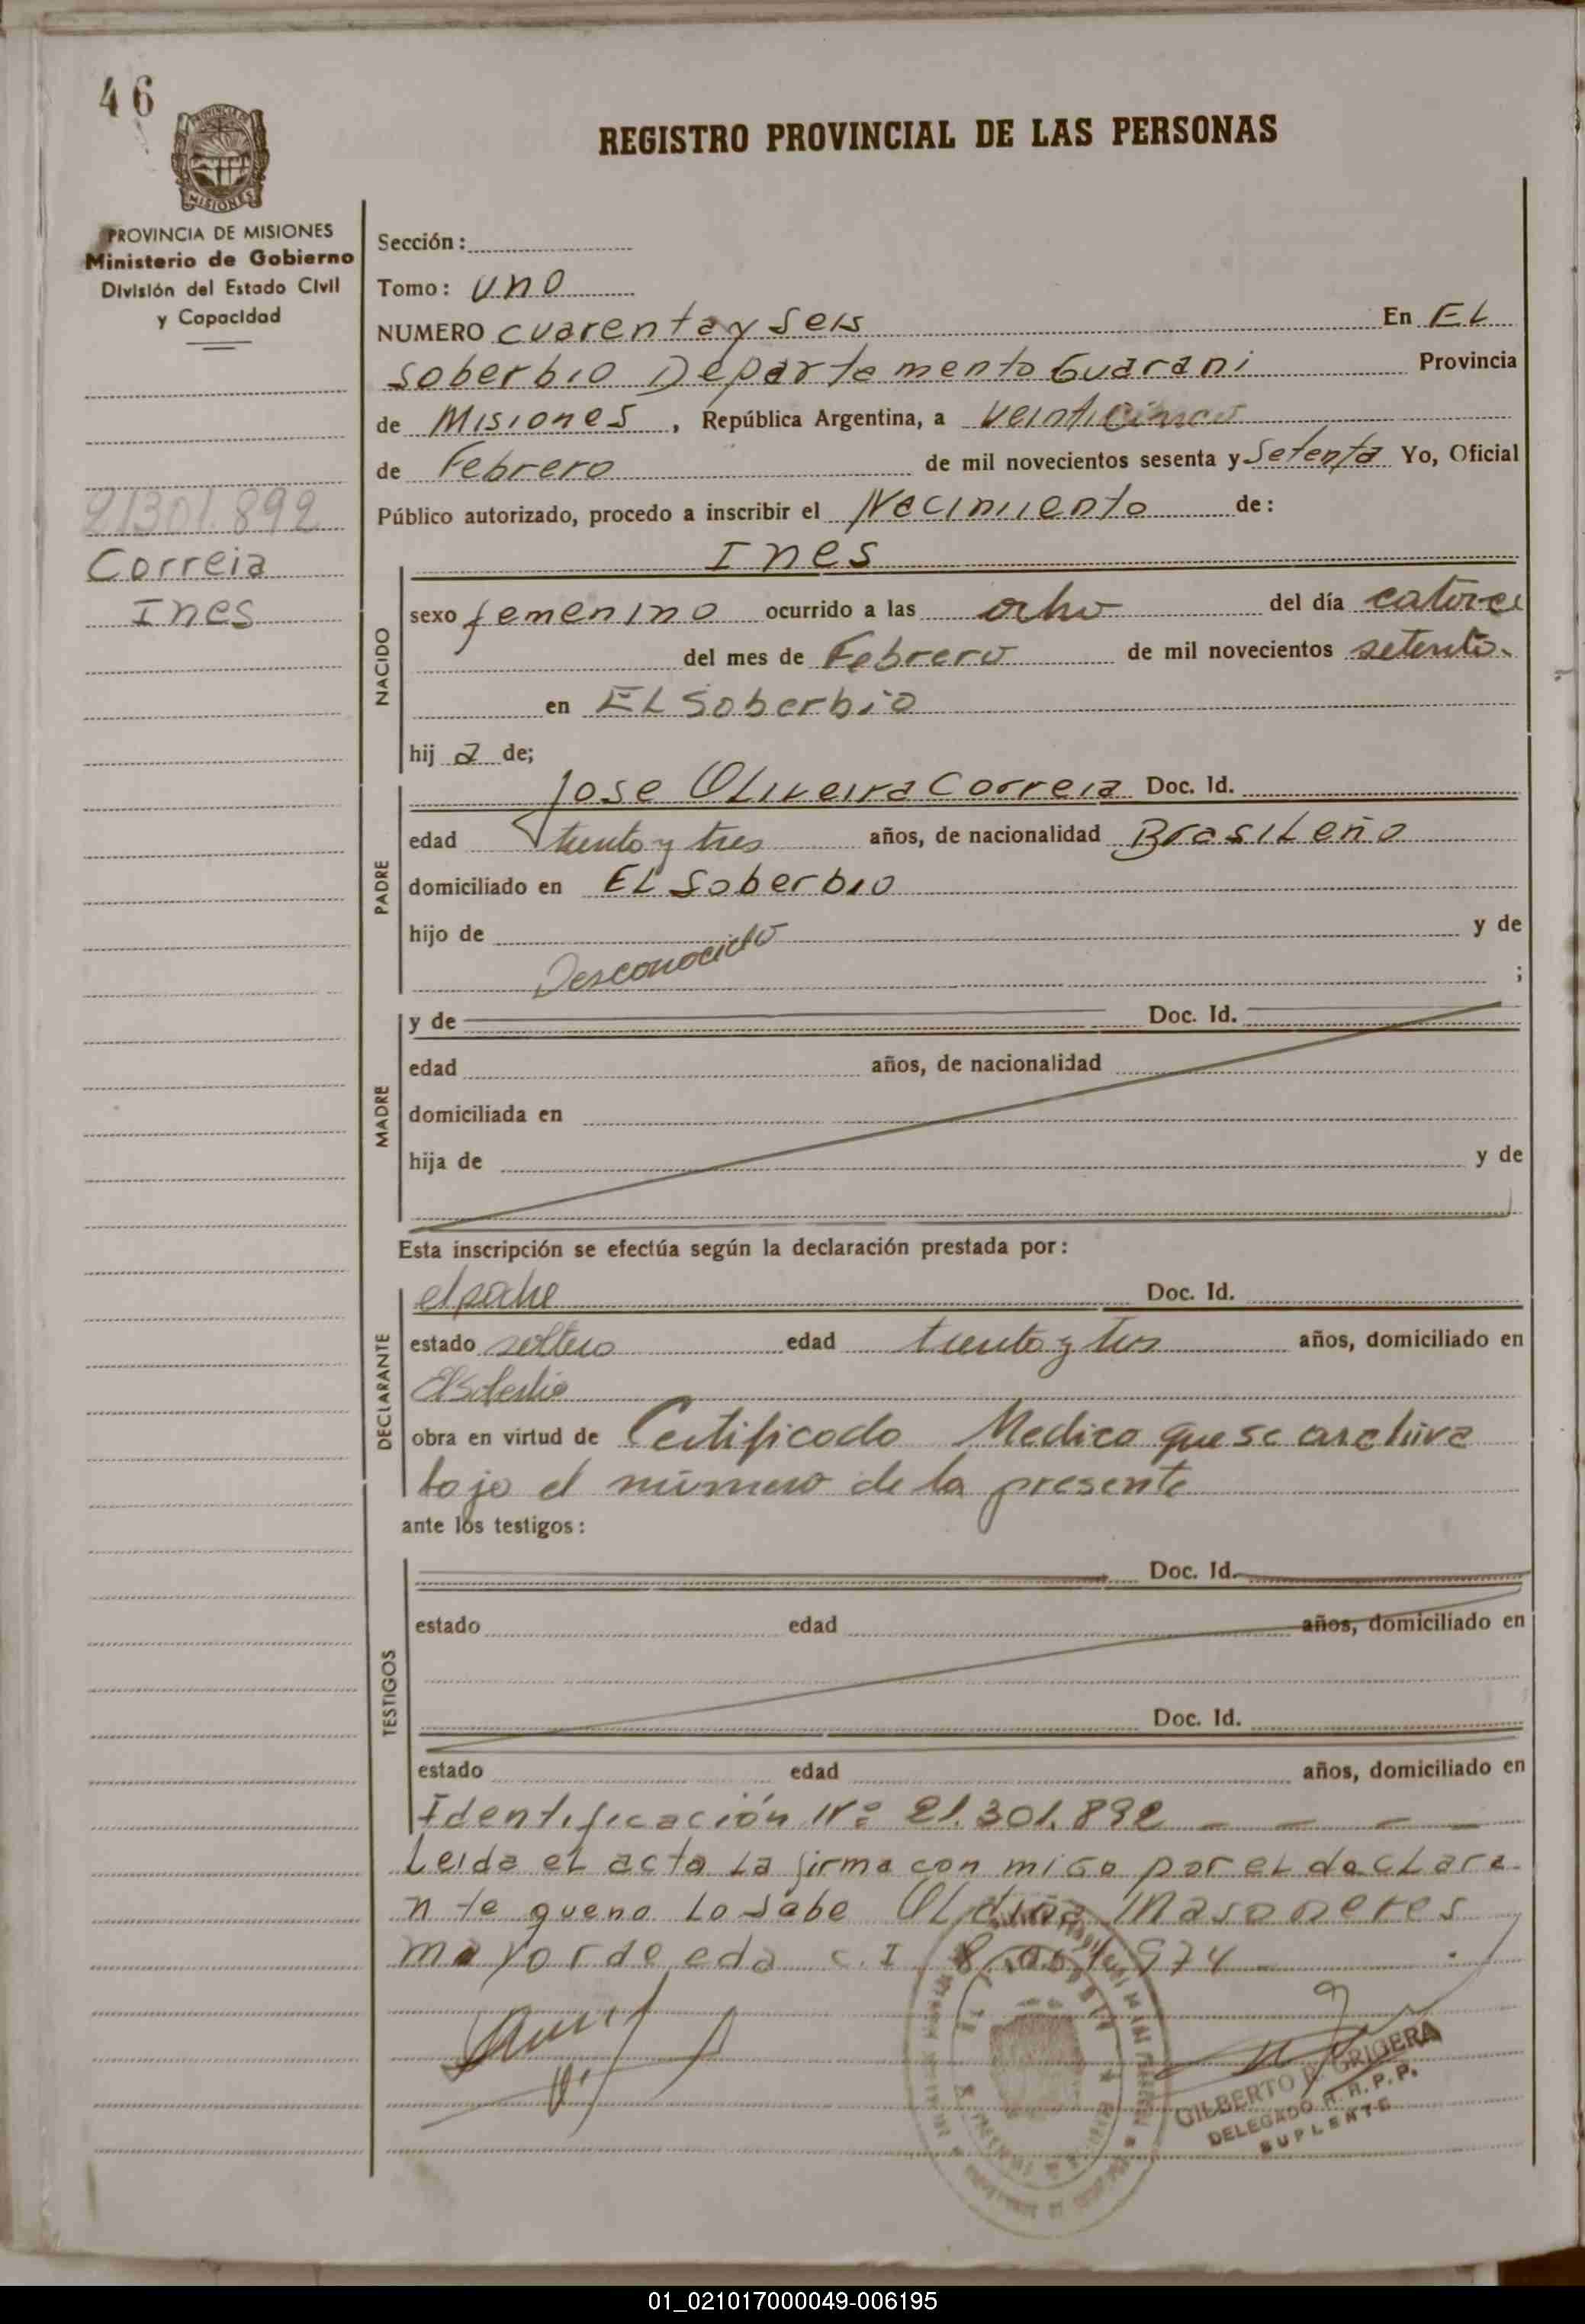 46
REGISTRO PROVINCIAL DE LAS PERSONAS
MISIONES
PROVINCIA DE MISIONES
Ministerio de Gobierno
División del Estado Civil
y Capacidad
21301.892
Correia
Ines
Sección:
Tomo: uno
NUMERO cuarenta y seis En EL
Soberbio Departamento Guarani Provincia
de Misiones, República Argentina, a veinticinco
de Febrero de mil novecientos sesenta y Setenta Yo, Oficial
Público autorizado, procedo a inscribir el Nacimiento de:
Ines
NACIDO
sexo femenino ocurrido a las ocho del día catorce
del mes de Febrero de mil novecientos setenta
en EL Soberbio
hij a de;
PADRE
Jose Oliveira Correia Doc. Id.
edad treinta y tres años, de nacionalidad Brasileño
domiciliado en EL Soberbio
hijo de Desconocido y de
;
MADRE
y de Doc. Id.
edad años, de nacionalidad
domiciliada en
hija de y de
Esta inscripción se efectúa según la declaración prestada por:
DECLARANTE
el padre Doc. Id.
estado soltero edad treinta y tres años, domiciliado en
El Soberbio
obra en virtud de Certificado Medico que se archiva
bajo el número de la presente
ante los testigos:
TESTIGOS
Doc. Id.
estado edad años, domiciliado en
Doc. Id.
estado edad años, domiciliado en
Identificación Nº 21.301.892
Leida el acta la firma con migo por el declara
nte que no lo sabe
mayor de eda c. I
GILBERTO GRIGERA
DELEGADO R.P.P.
SUPLENTE
01_021017000049-006195